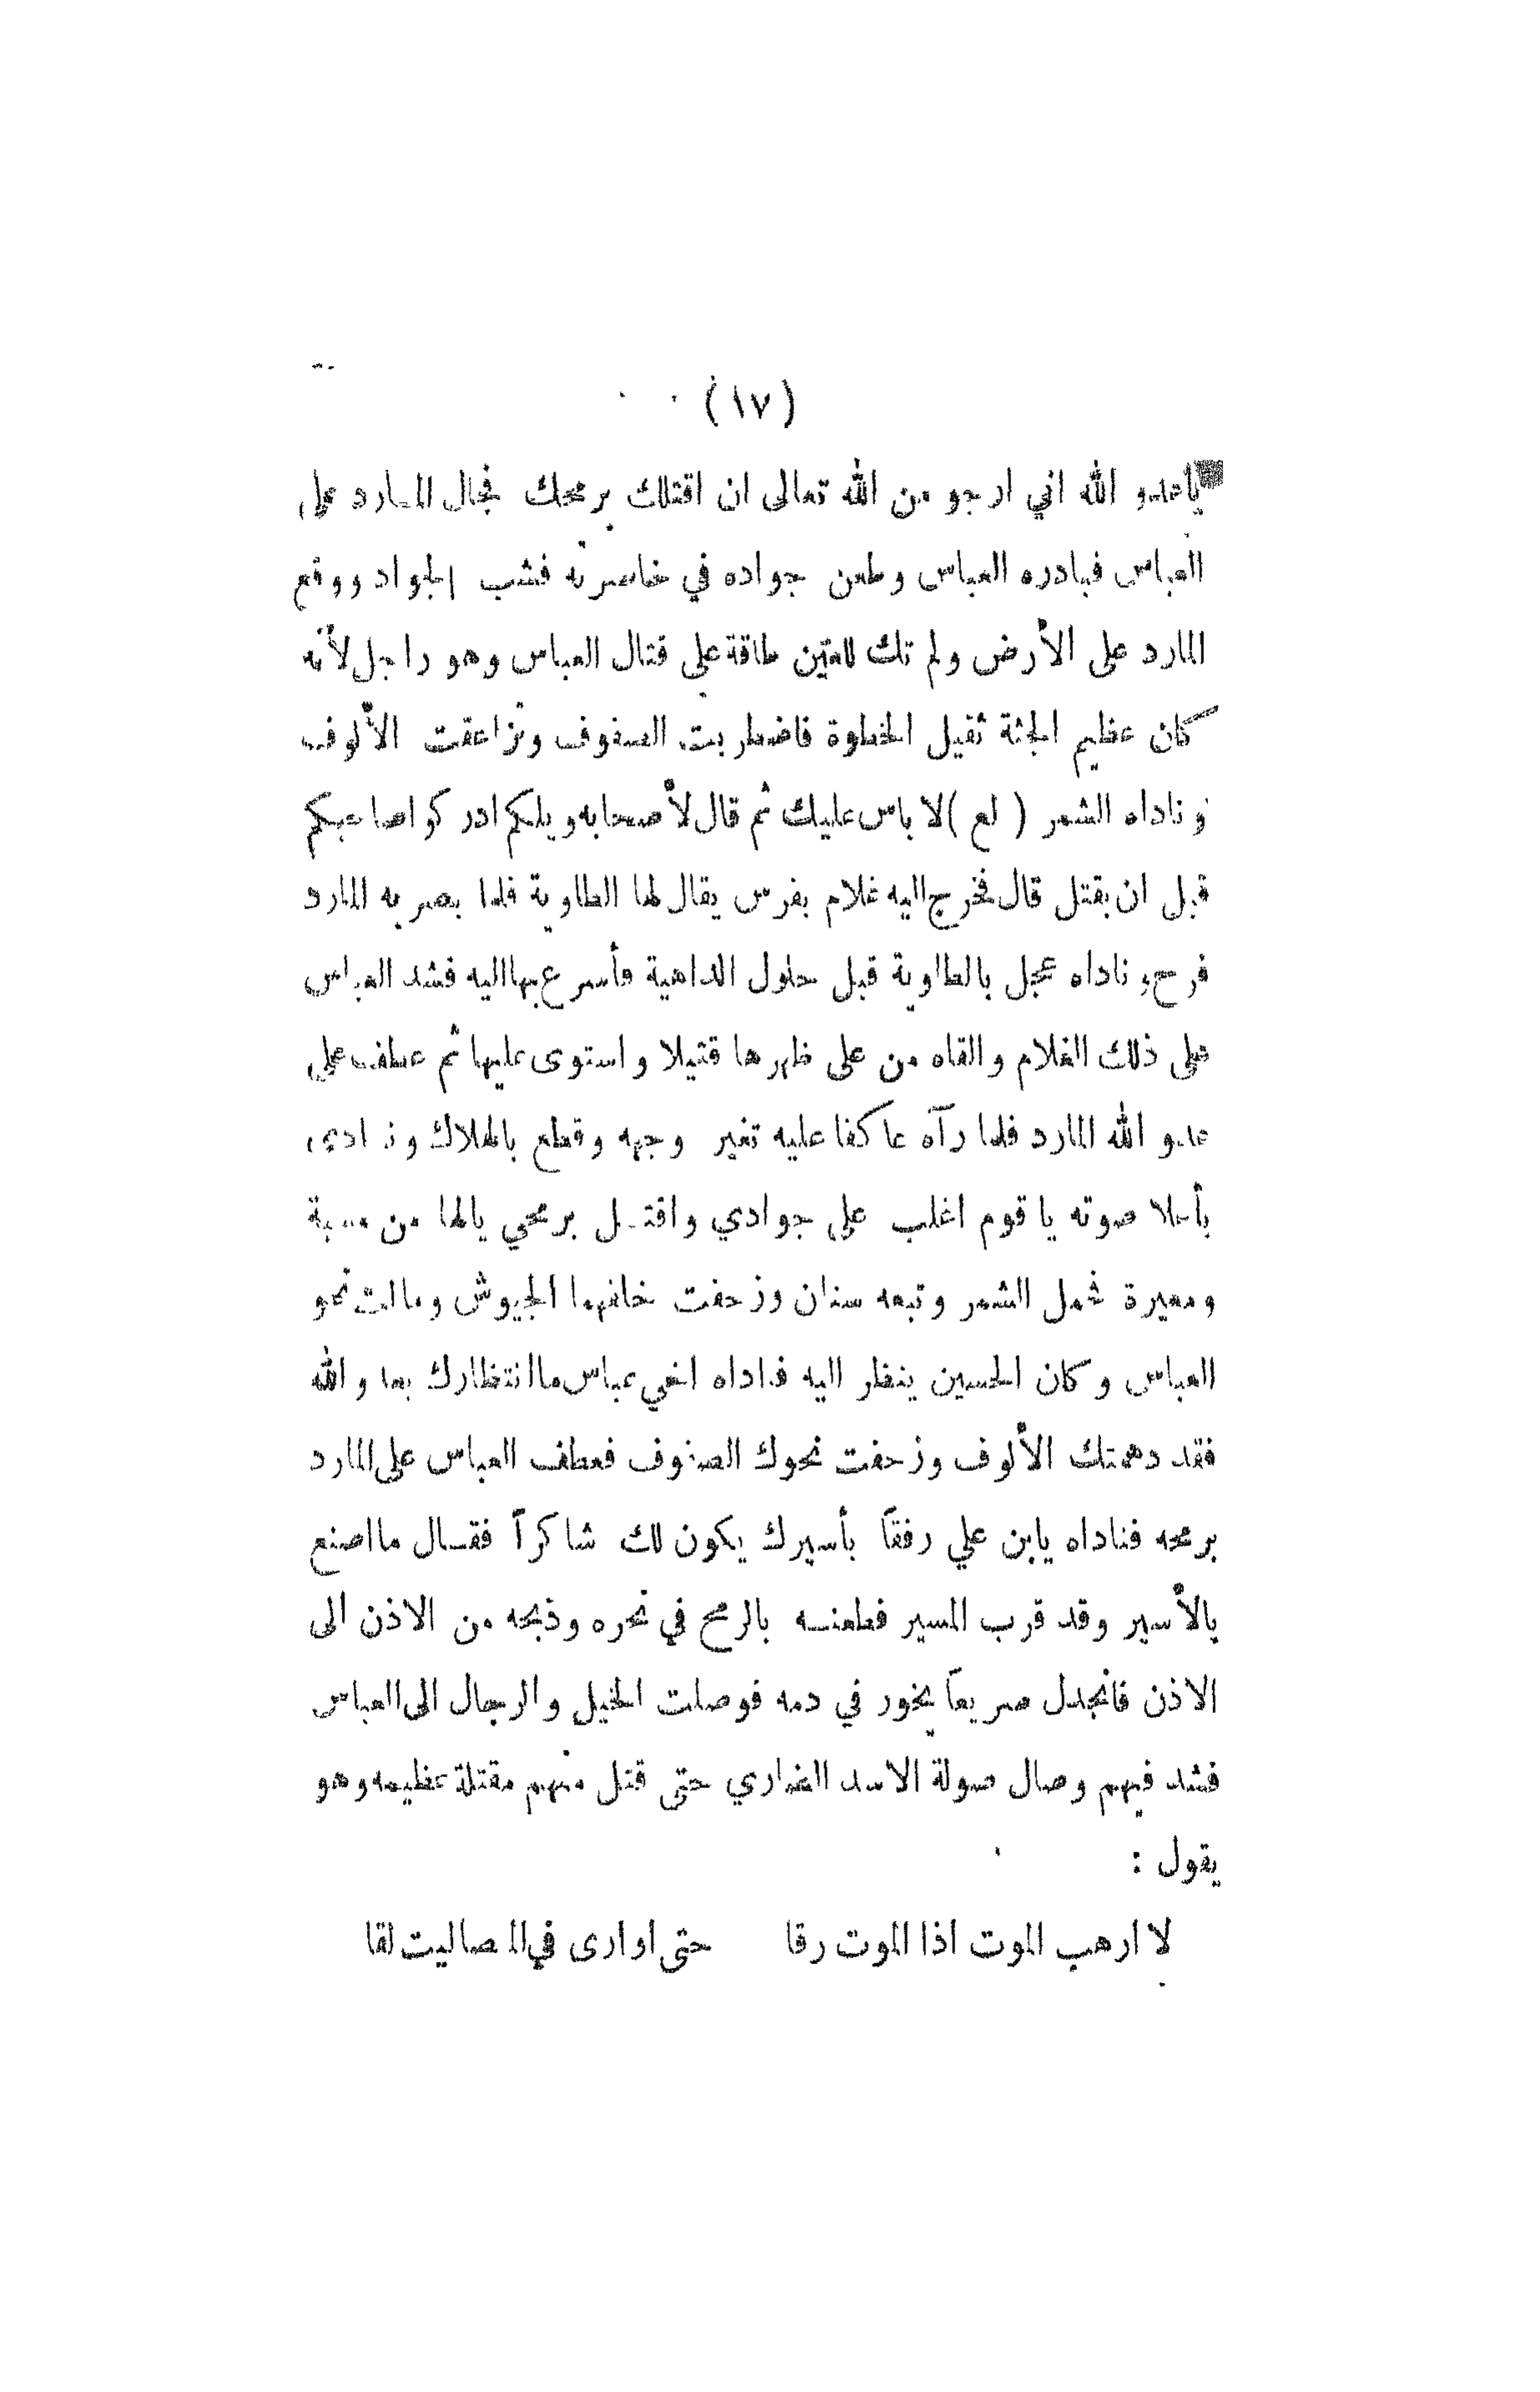 (١٧)
ياعدو الله اني ارجو من الله تعالى ان اقتلك برمحك فجال المارد على
العباس فبادره العباس وطعن جواده في خاصرته فشب الجواد ووقع
المارد على الأرض ولم تك للعين طاقة على قتال العباس وهو راجل لأنه
كان عظيم الجثة ثقيل الخطوة فاضطربت الصفوف وتزاعقت الألوف
وناداه الشمر ( لع ) لا باس عليك ثم قال لأصحابه ويلكم ادركوا صاحبكم
قبل ان يقتل قال فخرج اليه غلام بفرس يقال لها الطاوية فلما بصر به المارد
فرح وناداه عجل بالطاوية قبل حلول الداهية فأسرع بها اليه فشد العباس
على ذلك الغلام والقاه من على ظهرها قتيلا واستوى عليها ثم عطف على
عدو الله المارد فلما رآه عاكفا عليه تغير وجهه وقطع بالهلاك ونادى
بأعلا صوته يا قوم اغلب على جوادي واقتل برمحي يالها من سبة
ومعيرة فحمل الشمر وتبعه سنان وزحفت خلفهما الجيوش ومالت نحو
العباس وكان الحسين ينظر اليه فناداه اخي عباس ما انتظارك بعد والله
فقد دهمتك الألوف وزحفت نحوك الصفوف فعطف العباس على المارد
برمحه فناداه يابن علي رفقاً بأسيرك يكون لك شاكراً فقال ما اصنع
بالأسير وقد قرب المسير فطعنه بالرمح في نحره وذبحه من الاذن الى
الاذن فانجدل صريعاً يخور في دمه فوصلت الخيل والرجال الى العباس
فشد فيهم وصال صولة الاسد الضاري حتى قتل منهم مقتلة عظيمه وهو
يقول :
لا ارهب الموت اذا الموت رقا حتى اوارى في المصاليت لقا